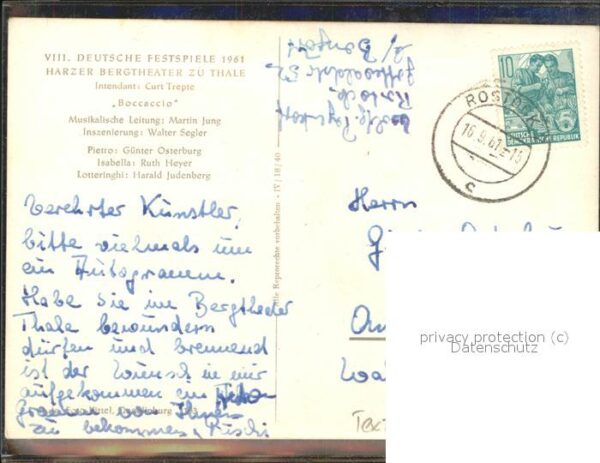 VIII. DEUTSCHE FESTSPIELE 1961
HARZER BERGTHEATER ZU THALE
Intendant: Curt Trepte
„Boccaccio"
Musikalische Leitung: Martin Jung
Inszenierung: Walter Segler
Pietro: Günter Osterburg
Isabella: Ruth Heyer
Lotteringhi: Harald Judenberg
Verehrter Künstler,
bitte vielmals um
ein Autogramm.
Habe Sie im Bergtheater
Thale bewundern
dürfen und brennend
ist der Wunsch in mir
aufgekommen ein Auto-
gramm von Ihnen
zu bekommen,
Alle Reprorechte vorbehalten - IV/18/40
Rostock
10
DEUTSCHE
DEMOKRATISCHE REPUBLIK
ROSTOCK
16.9.61
c
Herrn
privacy protection (c)
Datenschutz